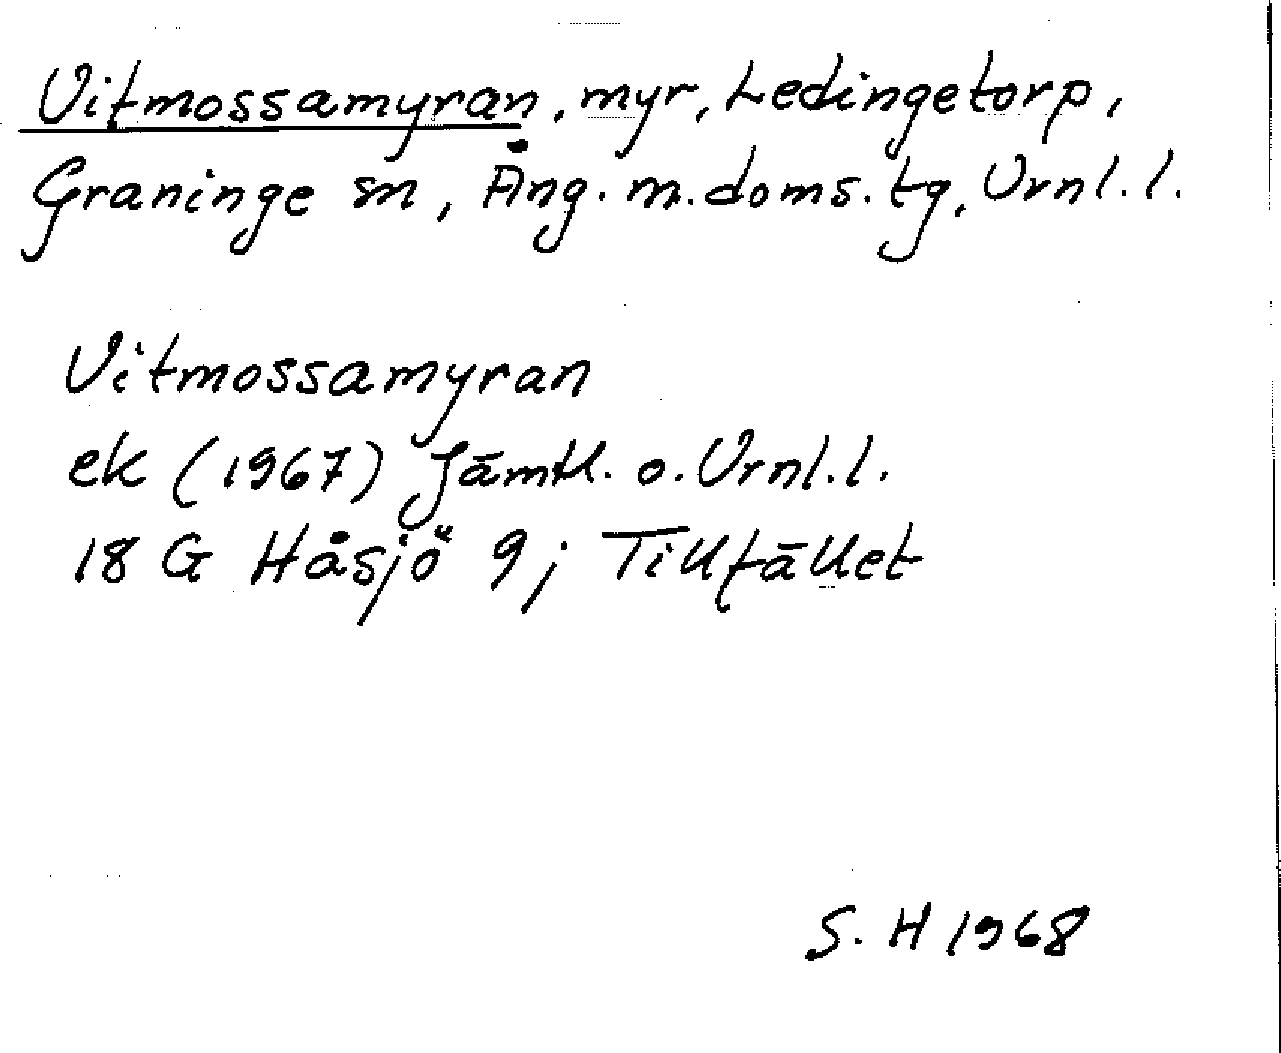 Vitmossamyran, myr, Ledingetorp,
Graninge sn, Ång. m. doms. tg, Vrnl. l.
Vitmossamyran
ek (1967) Jämtl. o. Vrnl. l.
18 G Håsjö 9; Tillfället
S. H 1968